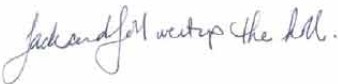 Jack and Jill went up the hill.